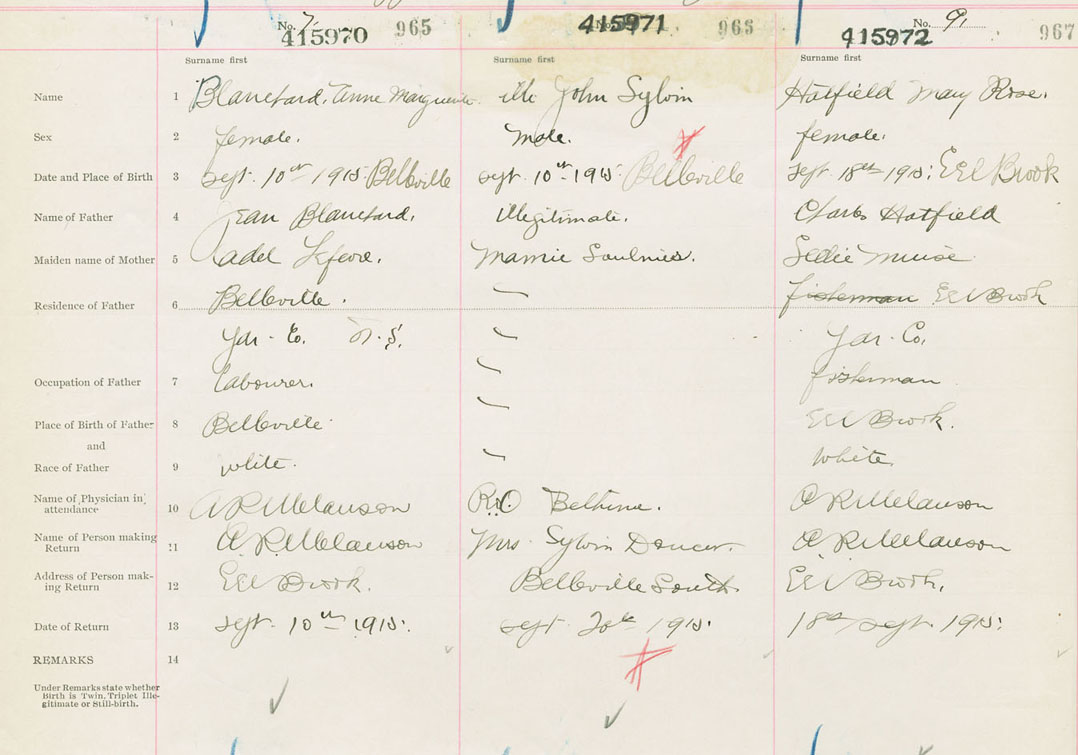 No. 7. 415970 965
415971 966
No. 9. 415972 967
Surname first Surname first Surname first
Name 1 Blanchard, Anne Marguerite John Sylvin Hatfield Mary Rose.
Sex 2 female. male. female.
Date and Place of Birth 3 Sept. 10th 1915. Belleville Sept. 10th 1915. Belleville Sept 18th 1915. Eel Brook
Name of Father 4 Jean Blanchard. Illegitimate. Charles Hatfield
Maiden name of Mother 5 Adel Lefevre. Mamie Saulnier. Sedie Muise
Residence of Father 6 Belleville. fisherman Eel Brook
Yar. Co. N.S. Yar. Co.
Occupation of Father 7 labourer. fisherman
Place of Birth of Father 8 Belleville Eel Brook.
and
Race of Father 9 white. white
Name of Physician in attendance 10 A R Melanson Bethune. A R Melanson
Name of Person making Return 11 A. R. Melanson Mrs. Sylvin Doucet. A R Melanson
Address of Person making Return 12 Eel Brook. Belleville South Eel Brook.
Date of Return 13 Sept. 10th 1915. Sept. 20th 1915. 18th Sept. 1915.
REMARKS 14
Under Remarks state whether
Birth is Twin, Triplet Ille-
gitimate or Still-birth.